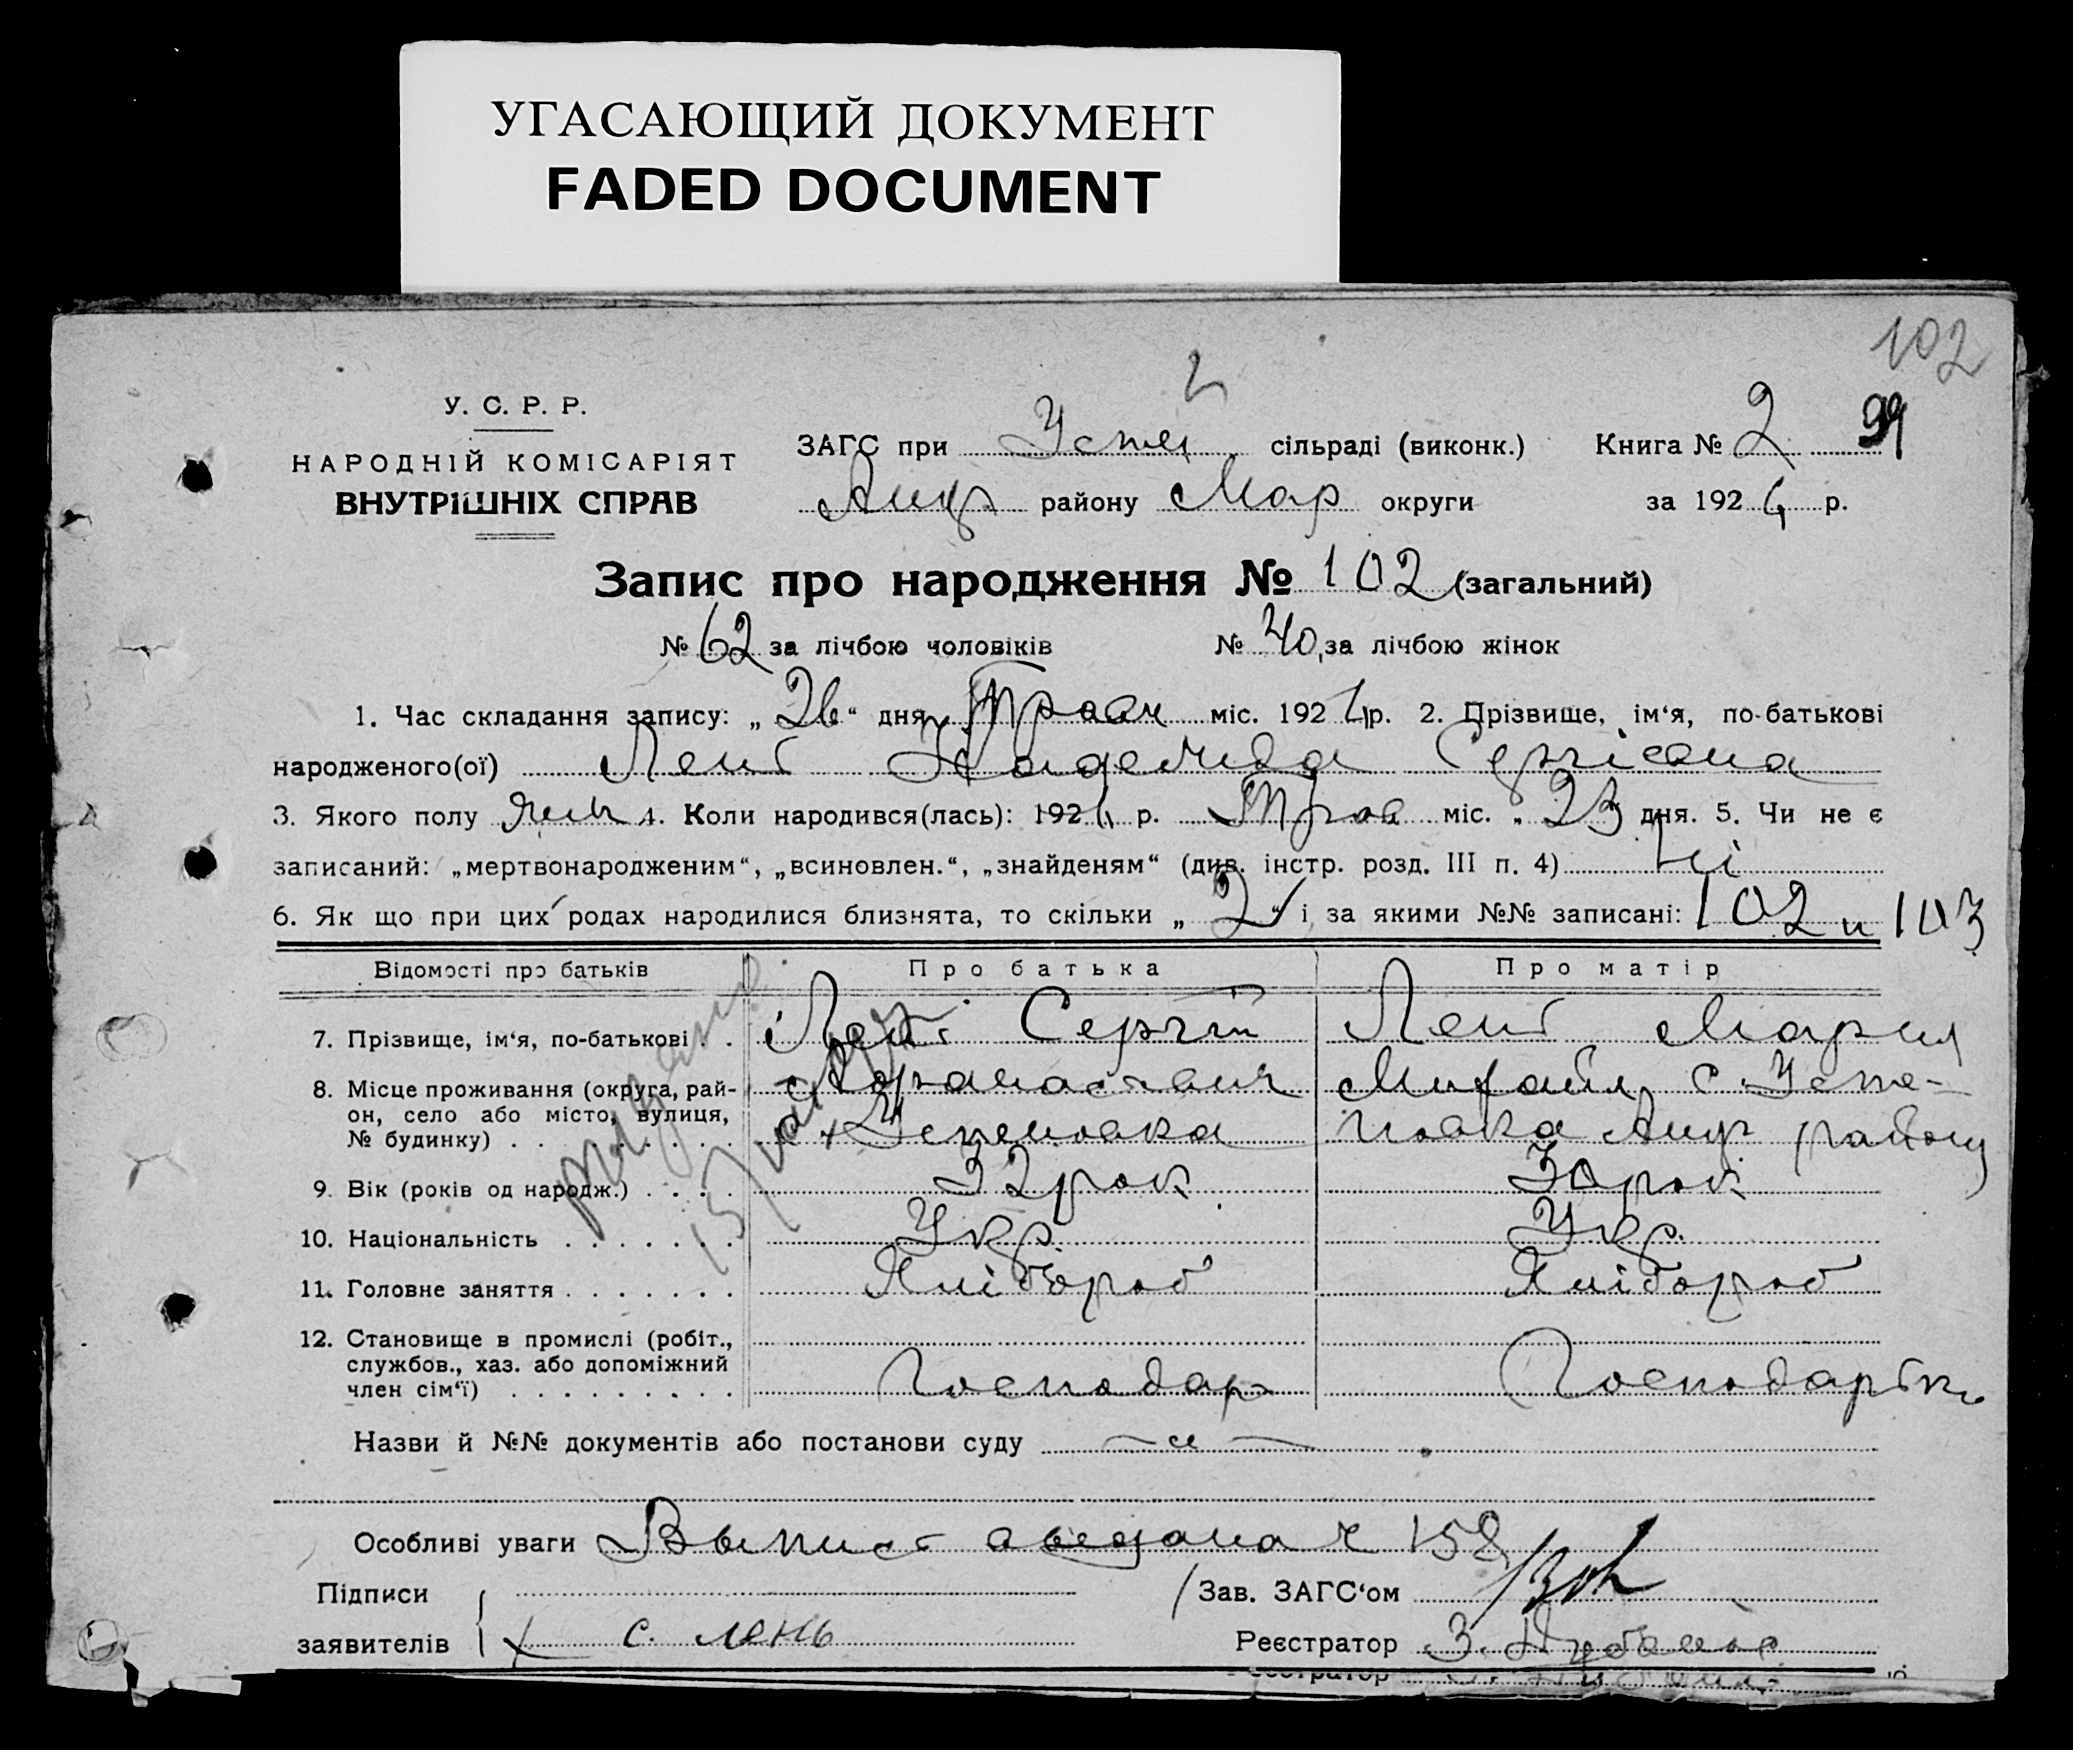 УГАСАЮЩИЙ ДОКУМЕНТ
FADED DOCUMENT
102
У. С. Р. Р.
НАРОДНІЙ КОМІСАРІЯТ
ВНУТРІШНІХ СПРАВ
ЗАГС при Успен сільраді (виконк.) Книга № 2 99
району Мар округи за 192 р.
Запис про народження № 102 (загальний)
№ 62 за лічбою чоловіків № 40 за лічбою жінок
1. Час складання запису: „26“ дня Травн міс. 192 р. 2. Прізвище, ім‘я, по-батькові
народженого(ої) Лень Надежда Сергієвна
3. Якого полу жін 4. Коли народився(лась): 192 р. Трав міс. „23 дня. 5. Чи не є
записаний: „мертвонародженим“, „всиновлен.“, „знайденям“ (див. інстр. розд. III п. 4) Ні
6. Як що при цих родах народилися близнята, то скільки „2“ і за якими №№ записані: 102 и 103
Відомості про батьків Про батька Про матір
7. Прізвище, ім‘я, по-батькові . . Лень Сергій Лень Мария
8. Місце проживання (округа, рай- Михайл с Успе-
он, село або місто, вулиця, Успеновка новка району
№ будинку) . . . . . . . . .
9. Вік (років од народж.) . . . . 32 рок 30 рок
10. Національність . . . . . . . Укр. Укр.
11. Головне заняття . . . . . . . Хлібороб Хлібороб
12. Становище в промислі (робіт.,
службов., хаз. або допоміжний
член сім‘ї) . . . . . . . . . Господар Господарька
Назви й №№ документів або постанови суду
Особливі уваги Выпись 158
Підписи Зав. ЗАГС‘ом
заявителів с. лень Реєстратор З.